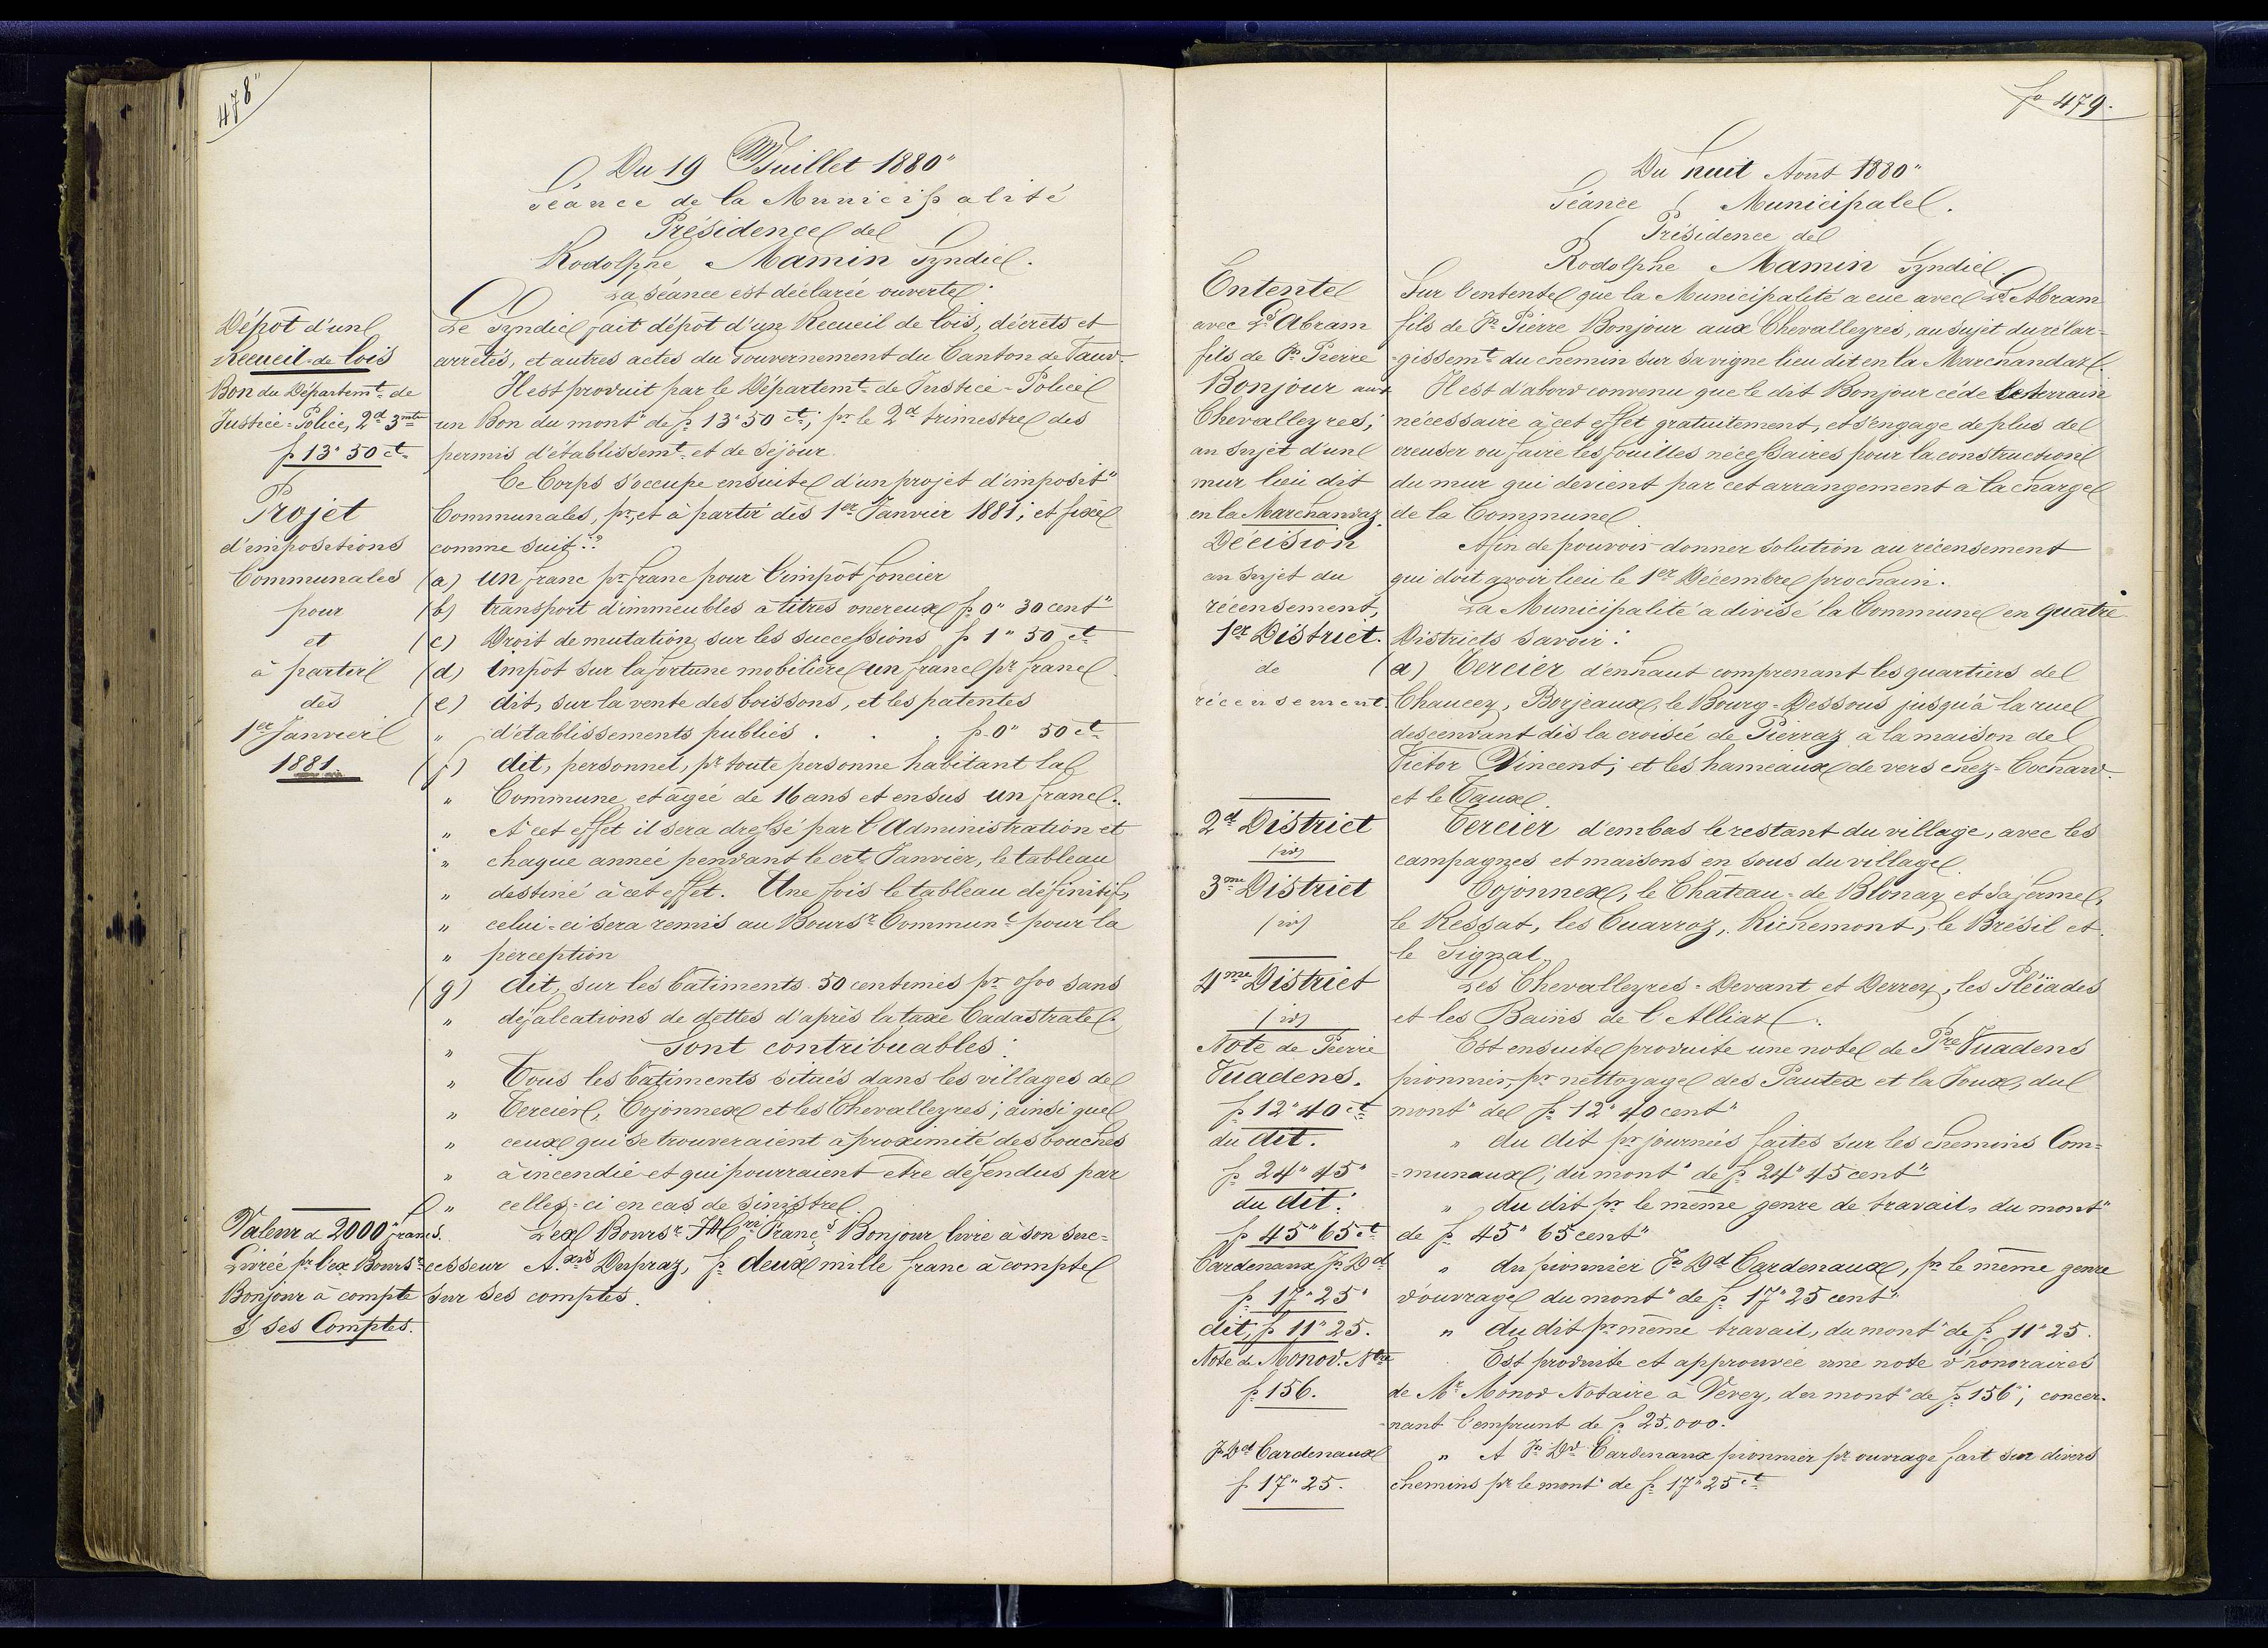 478"
Du 19 Juillet 1880"
Séance de la Municipalité
Présidence de
Rodolphe Mamin Syndic.
La séance est déclarée ouverte.
Dépôt d'un
Recueil=de lois
Le Syndic fait dépôt d'un Recueil de lois, décrets et
arrêtés, et autres actes du Gouvernement du Canton de Vaud.
Bon du Départemt. de
Justice=Police, 2d 3mtre
f. 13" 50 ct.
Il est produit par le Départemt. de Justice=Police
un Bon du mont" de f. 13" 50 ct; pr. le 2d trimestre des
permis d'établissemt. et de séjour.
Projet
d'impositions
Communales
pour
et
à partir
dès
1er Janvier
1881.
Ce Corps s'occupe ensuite d'un projet d'imposit"
Communales, pr, et à partir dès 1er Janvier 1881; et fixée
comme suit:
(a) un franc pr. franc pour l'impôt foncier
(b) transport d'immeubles à titres onereux f. 0" 30 cent"
(c) Droit de mutation sur les successions f. 1" 50 ct
(d) impôt sur la fortune mobilière un franc pr franc.
(e) dit, sur la vente des boissons, et les patentes
" d'établissements publics . . . f. 0" 50 ct
(f) dit, personnel, pr toute personne habitant la
" Commune et âgée de 16 ans et en sus un franc.
" A cet effet il sera dressé par l'Administration et
" chaque année pendant le crt. Janvier, le tableau
" destiné à cet effet. Une fois le tableau définitif,
" celui=ci sera remis au Boursr. Communl pour la
" perception
(g) dit, sur les bâtiments 50 centimes pr 0/00 sans
" défalcations de dettes d'après la taxe Cadastrale.
" Sont contribuables:
" Tous les bâtiments situés dans les villages de
" Tercier, Cojonnex et les Chevalleyres; ainsi que
" ceux qui se trouveraient à proximité des bouches
" à incendie et qui pourraient être défendus par
" celles=ci en cas de sinistre.
Valeur d 2000" francs.
Livrée pr l'ex Boursr
Bonjour à compte
s/ ses Comptes.
L'ex Boursr. Franç.s Bonjour livre à son suc=
cesseur A.xis Dupraz, f. deux mille franc à compte
sur ses comptes.
fo 479.
Du huit Août 1880"
Séance Municipale.
Présidence de
Rodolphe Mamin Syndic.
Entente
avec Ls Abram
fils de Jn Pierre
Bonjour aux
Chevalleyres;
au sujet d'un
mur lieu dit
en la Marchandaz.
Sur l'entente que la Municipalité a eue avec Ls Abram
fils de Jn Pierre Bonjour aux Chevalleyres, au sujet du rélar=
=gissemt. du chemin sur sa vigne lieu dit en la Marchandaz.
Il est d'abord convenu que le dit Bonjour cède le terrain
nécessaire à cet effet gratuitement, et s'engage de plus de
creuser ou faire les fouilles nécessaires pour la construction
du mur qui devient par cet arrangement à la charge
de la Commune.
Décision
au sujet du
récensement,
Afin de pouvoir donner solution au récensement
qui doit avoir lieu le 1er Décembre prochain.
La Municipalité a divisé la Commune en quatre
1er District.
de
récensement.
Districts savoir:
(a) Tercier d'enhaut comprenant les quartiers de
Chaucey, Borjeaux, le Bourg=Dessous jusqu'à la ruel
descendant dès la croisié de Pierraz à la maison de
Victor Vincent; et les hameaux de vers chez=Cochard
et le Taux.
2d District
(id)
Tercier d'embas le restant du village, avec les
campagnes et maisons en sous du village.
3me District
(id)
Cojonnex, le Château=de Blonay et sa ferme,
le Ressat, les Cuarroz, Richemont, le Brésil et
le Signal.
4me District
(id)
Les Chevalleyres=Devant et Derrey, les Pléïades
et les Bains de l'Alliaz.
Note de Pierre
Vuadens.
f. 12" 40 ct
Est ensuite produite une note de Pre Vuadens
pionnier, pr nettoyage des Pautex et la Joux, du
mont" de f. 12" 40 cent"
du dit.
f. 24" 45"
" du dit pr journées faites sur les chemins Com=
=munaux, du mont" de f. 24" 45 cent"
du dit:
f. 45" 65 ct
" du dit pr. le même genre de travail, du mont"
de f. 45" 65 cent"
Cardenaux Jn Dd
f. 17" 25"
" du pionnier Jn Dd Cardenaux, pr le même genre
d'ouvrage du mont" de f. 17" 25 cent"
dit, f. 11" 25.
" du dit pr. même travail, du mont" de f. 11" 25.
Note de Monod. Nre
f. 156.
Est produite et approuvée une note d'honoraires
de Mr. Monod Notaire à Vevey, du mont" de f. 156"; concer=
=nant l'emprunt de f. 25,000.
Jn Dd Cardenaux
f. 17" 25.
" A Jn Dd Cardenaux pionnier pr ouvrage fait sur divers
chemins pr le mont" de f. 17" 25 ct